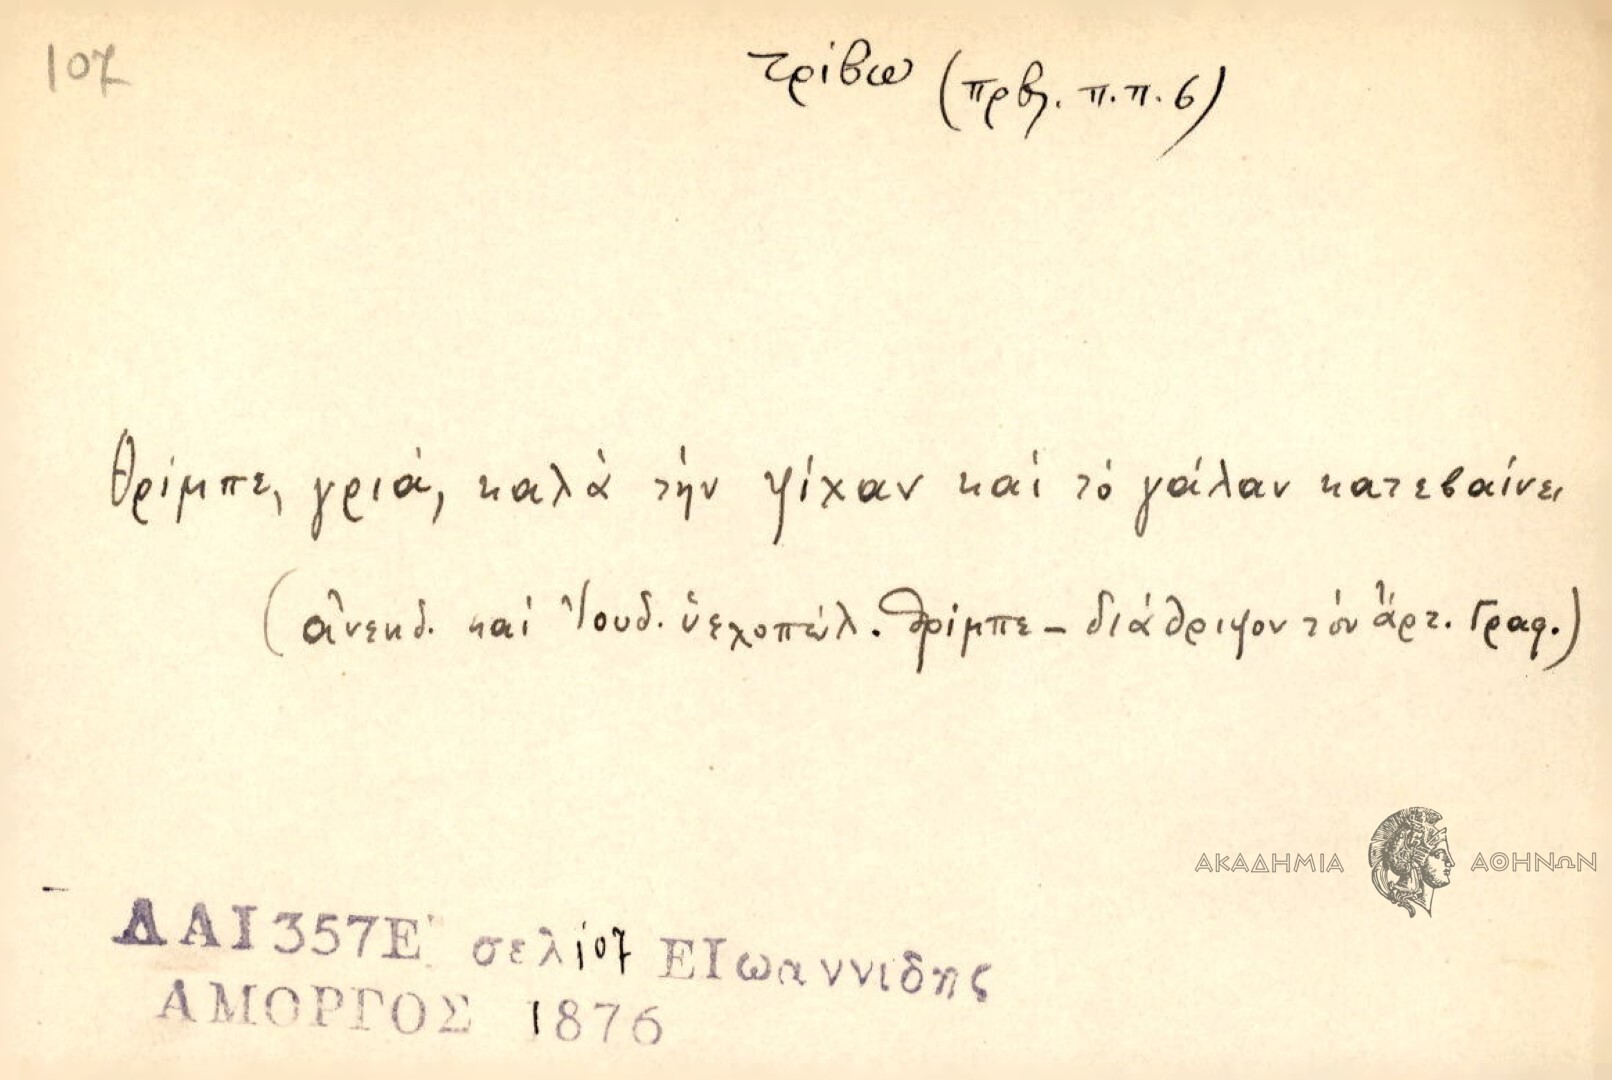 107
τρίβω (πρβλ. π.π. 6)
Θρίμπε, γριά, καλὰ τὴν ψίχαν καὶ τὸ γάλαν κατεβαίνει
(ἀνεκδ. καὶ Ἰουδ. ὑεχοπώλ. Θρίμπε – διάθριψον τὸν ἄρτ. Γραφ.)
ΑΚΑΔΗΜΙΑ ΑΘΗΝΩΝ
ΔΑΙ 357Ε' σελ 107 ΕΙωαννιδης
ΑΜΟΡΓΟΣ 1876